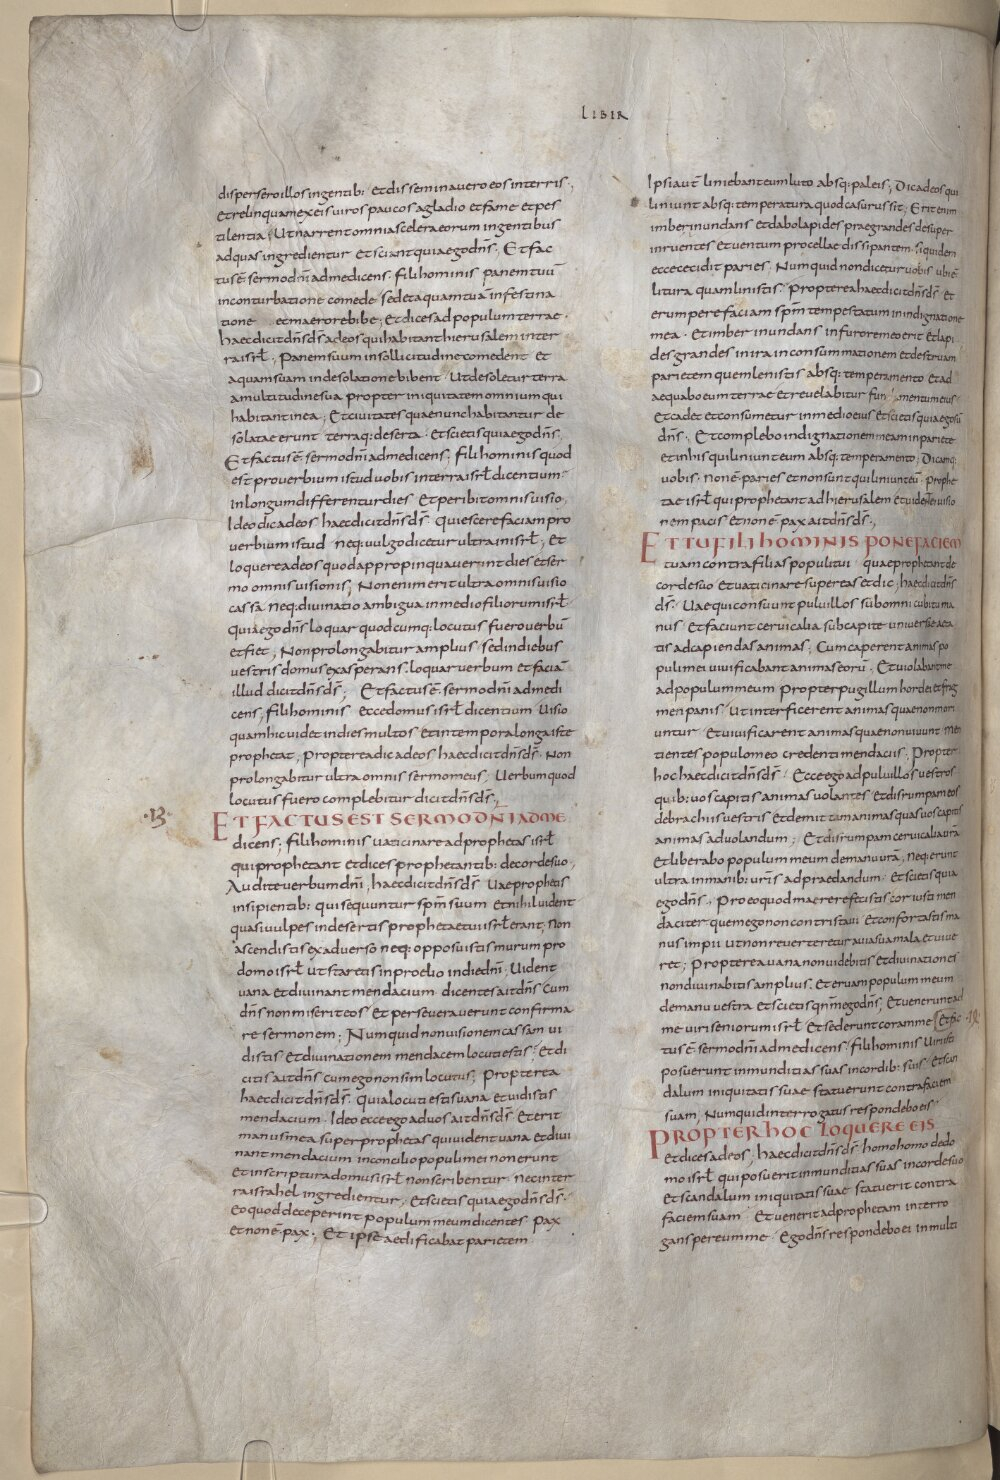 LIBER
disperseroillos ingentib; Et disseminavero eos interris,
Et relinquam exeis viros paucos a gladio et fame et pes
tilentia, Ut narrent omnia scelera eorum ingentibus
ad quas ingredientur et sciant quia ego dn̄s, Et fac
tus ē sermo dn̄i ad me dicens. fili hominis panem tuū
in conturbatione comede sed et aquam tuā in festina
tione et maerore bibe; Et dices ad populum terrae.
haec dicit dn̄s d̄s ad eos qui habitant hierusalem in ter
ra isrł. Panem suum in sollicitudine comedent et
aquam suam in desolatione bibent. Ut desoletur terra
a multitudine sua propter iniquitatem omnium qui
habitant in ea, Et civitates quae nunc habitantur de
solatae erunt terraq: deserta. et scietis quia ego dn̄s,
Et factus ē sermo dn̄i ad me dicens, fili hominis quod
est proverbium istud vobis in terra isrł dicentium
In longum differentur dies et peribit omnis visio,
Ideo dic ad eos haec dicit dn̄s d̄s. Quiescere faciam pro
verbium istud neq: vulgo dicetur ultra in isrł, Et
loquere ad eos quod appropinquaverint dies et ser
mo omnis visionis, Non enim erit ultra omnis visio
cassa. neq: divinatio ambigua in medio filiorum isrł
quia ego dn̄s loquar quodcumq: locutus fuero verbū
et fiet, Non prolongabitur amplius sed in diebus
vestris domus exasperans. loquar verbum et faciā
illud dicit dn̄s d̄s; Et factus ē sermo dn̄i ad me di
cens, fili hominis ecce domus isrł dicentium Visio
quam hic videt in dies multos et in tempora longa iste
prophetat, Propterea dic ad eos haec dicit dn̄s d̄s. Non
prolongabitur ultra omnis sermo meus, Verbum quod
locutus fuero complebitur dicit dn̄s d̄s,
·13· ET FACTUS EST SERMO DN̄I AD ME
dicens; fili hominis vaticinare ad prophetas isrł
qui prophetant et dices prophetantib: de corde suo,
Audite verbum dn̄i, haec dicit dn̄s d̄s Vae prophetis
insipientib: qui sequuntur sp̄m suum et nihil vident
quasi vulpes in desertis prophetae tui isrł erant, Non
ascendistis ex adverso neq: opposuistis murum pro
domo isrł ut staretis in proelio in die dn̄i; Vident
vana et divinant mendacium dicentes ait dn̄s cum
dn̄s non miserit eos et perseveraverunt confirma
re sermonem; Numquid non visionem cassam vi
distis et divinationem mendacem locuti estis, Et di
citis ait dn̄s cum ego non sim locutus; Propterea
haec dicit dn̄s d̄s. Quia locuti estis vana et vidistis
mendacium. Ideo ecce ego ad vos ait dn̄s d̄s et erit
manus mea super prophetas qui vident vana et divi
nant mendacium in concilio populi mei non erunt
et in scriptura domus isrł non scribentur. nec in ter
ra israhel ingredientur, Et scietis quia ego dn̄s d̄s.
eo quod deceperint populum meum dicentes pax
et non ē pax; Et ipse aedificabat parietem
Ipsi aut̄ liniebant eum luto absq: paleis; Dic ad eos qui
liniunt absq: temperatura quod casurus sit; Erit enim
imber inundans et dabo lapides praegrandes desuper
inruentes et ventum procellae dissipantem. siquidem
ecce cecidit paries. Numquid non dicetur vobis ubi ē
litura quam linistis. Propterea haec dicit dn̄s d̄s et
erumpere faciam sp̄m tempestatum in indignatione
mea. Et imber inundans in furore meo erit et lapi
des grandes in ira in consummationem et destruam
parietem quem lenistis absq: temperamento et ad
aequabo eum terrae et revelabitur fundamentum eius
et cadet et consumetur in medio eius et scietis quia ego sū
dn̄s. Et complebo indignationem meam in pariete
et in his qui liniunt eum absq: temperamento; Dicamq:
vobis. Non ē paries et non sunt qui liniunt eū. prophe
tae isrł qui prophetant ad hierusalem et vident ei visio
nem pacis et non ē pax ait dn̄s d̄s.,
ET TU FILI HOMINIS PONE FACIEM
tuam contra filias populi tui quae prophetant de
corde suo et vaticinare super eas et dic, haec dicit dn̄s
d̄s. Vae qui consuunt pulvillos sub omni cubitu ma
nus. Et faciunt cervicalia sub capite universae aeta
tis ad capiendas animas, Cum caperent animas po
puli mei vivificabant animas eorū. Et violabant me
ad populum meum propter pugillum hordei et frag
men panis. Ut interficerent animas quae non mori
untur Et vivificarent animas quae non vivunt men
tientes populo meo credenti mendaciis, Propter
hoc haec dicit dn̄s d̄s. Ecce ego ad pulvillos vestros
quib: vos capitis animas volantes et disrumpam eos
de brachiis vestris et demittam animas quas vos capitis
animas ad volandum, Et disrumpam cervicalia vr̄a
et liberabo populum meum de manu vr̄a, neq: erunt
ultra in manib: vr̄is ad praedandum. et scietis quia
ego dn̄s, Pro eo quod maerere fecistis cor iusti men
daciter quem ego non contristavi et confortastis ma
nus impii ut non reverteretur a via sua mala et vive
ret; Propterea vana non videbitis et divinationes
non divinabitis amplius. et eruam populum meum
de manu vestra et scietis qm̄ ego dn̄s; Et venerunt ad
me viri seniorum isrł et sederunt coram me Et fac ·14·
tus ē sermo dn̄i ad me dicens fili hominis viri isti
posuerunt inmunditias suas in cordib: suis. et scan
dalum iniquitatis suae statuerunt contra faciem
suam, Numquid interrogatus respondebo eis
PROPTER HOC LOQUERE EIS
et dices ad eos, haec dicit dn̄s d̄s homo homo de do
mo isrł qui posuerit inmunditias suas in corde suo
et scandalum iniquitatis suae statuerit contra
faciem suam. Et venerit ad prophetam interro
gans per eum me. Ego dn̄s respondebo ei in multi